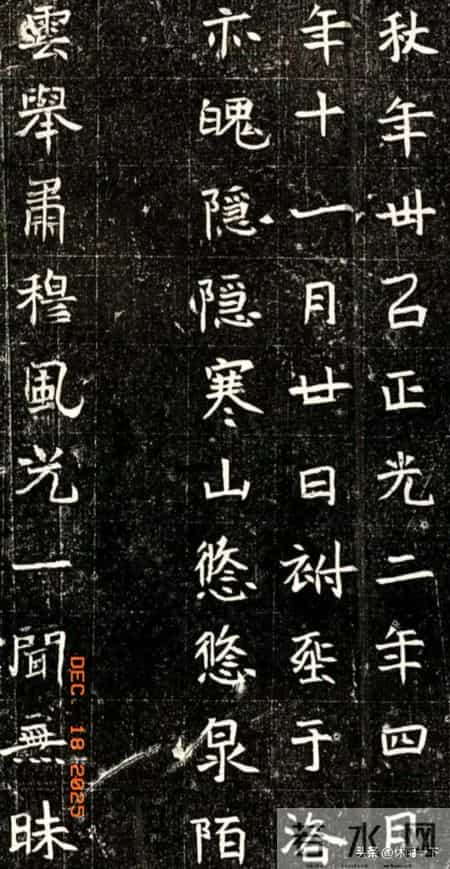 秋年丗己正光二年四月
年十一月廿日祔塟于洛
亦魄隠隠寒山悠悠泉陌
雲舉肅穆風光一聞無昧
DEC. 18 2025
若水网
头条 @休 一下